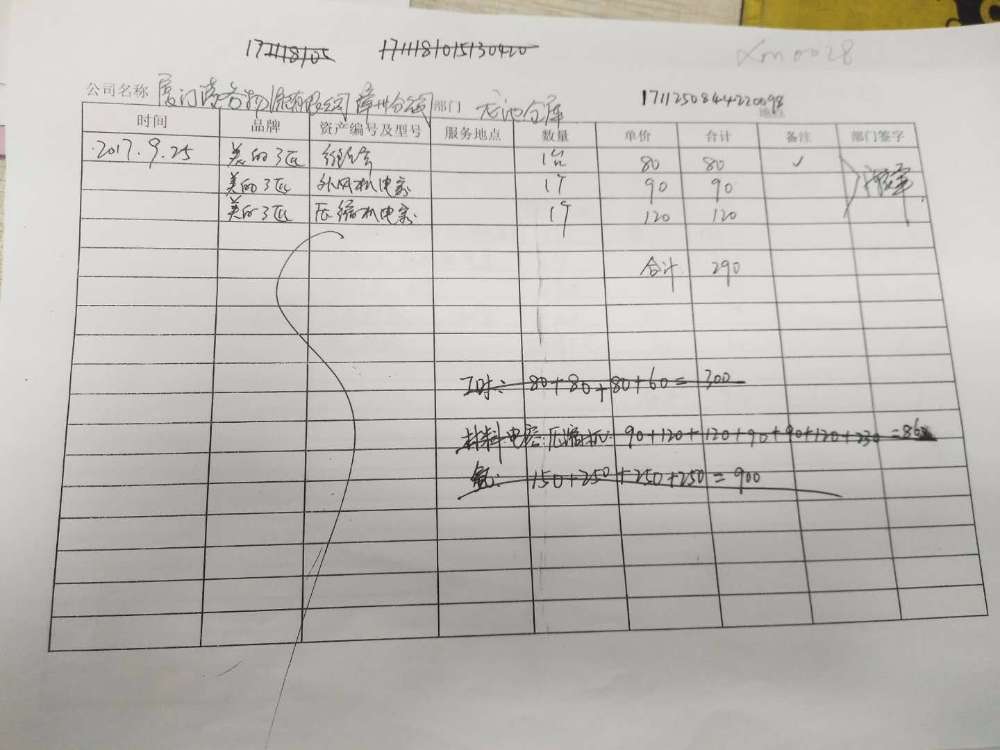 171118105 1711181015130420
Xm0028
公司名称 厦门 有限公司 漳州分公司 部门 龙池仓库 1711250844220098
时间 品牌 资产编号及型号 服务地点 数量 单价 合计 备注 部门签字
2017.9.25 美的3匹 维修 1台 80 80 ✓
美的3匹 外风机电容 1个 90 90
美的3匹 压缩机电容 1个 120 120
合计 290
工时: 80+80+80+60=300
材料电容:压缩机: 90+120+120+90+90+120+230=86
氟: 150+250+250+250=900